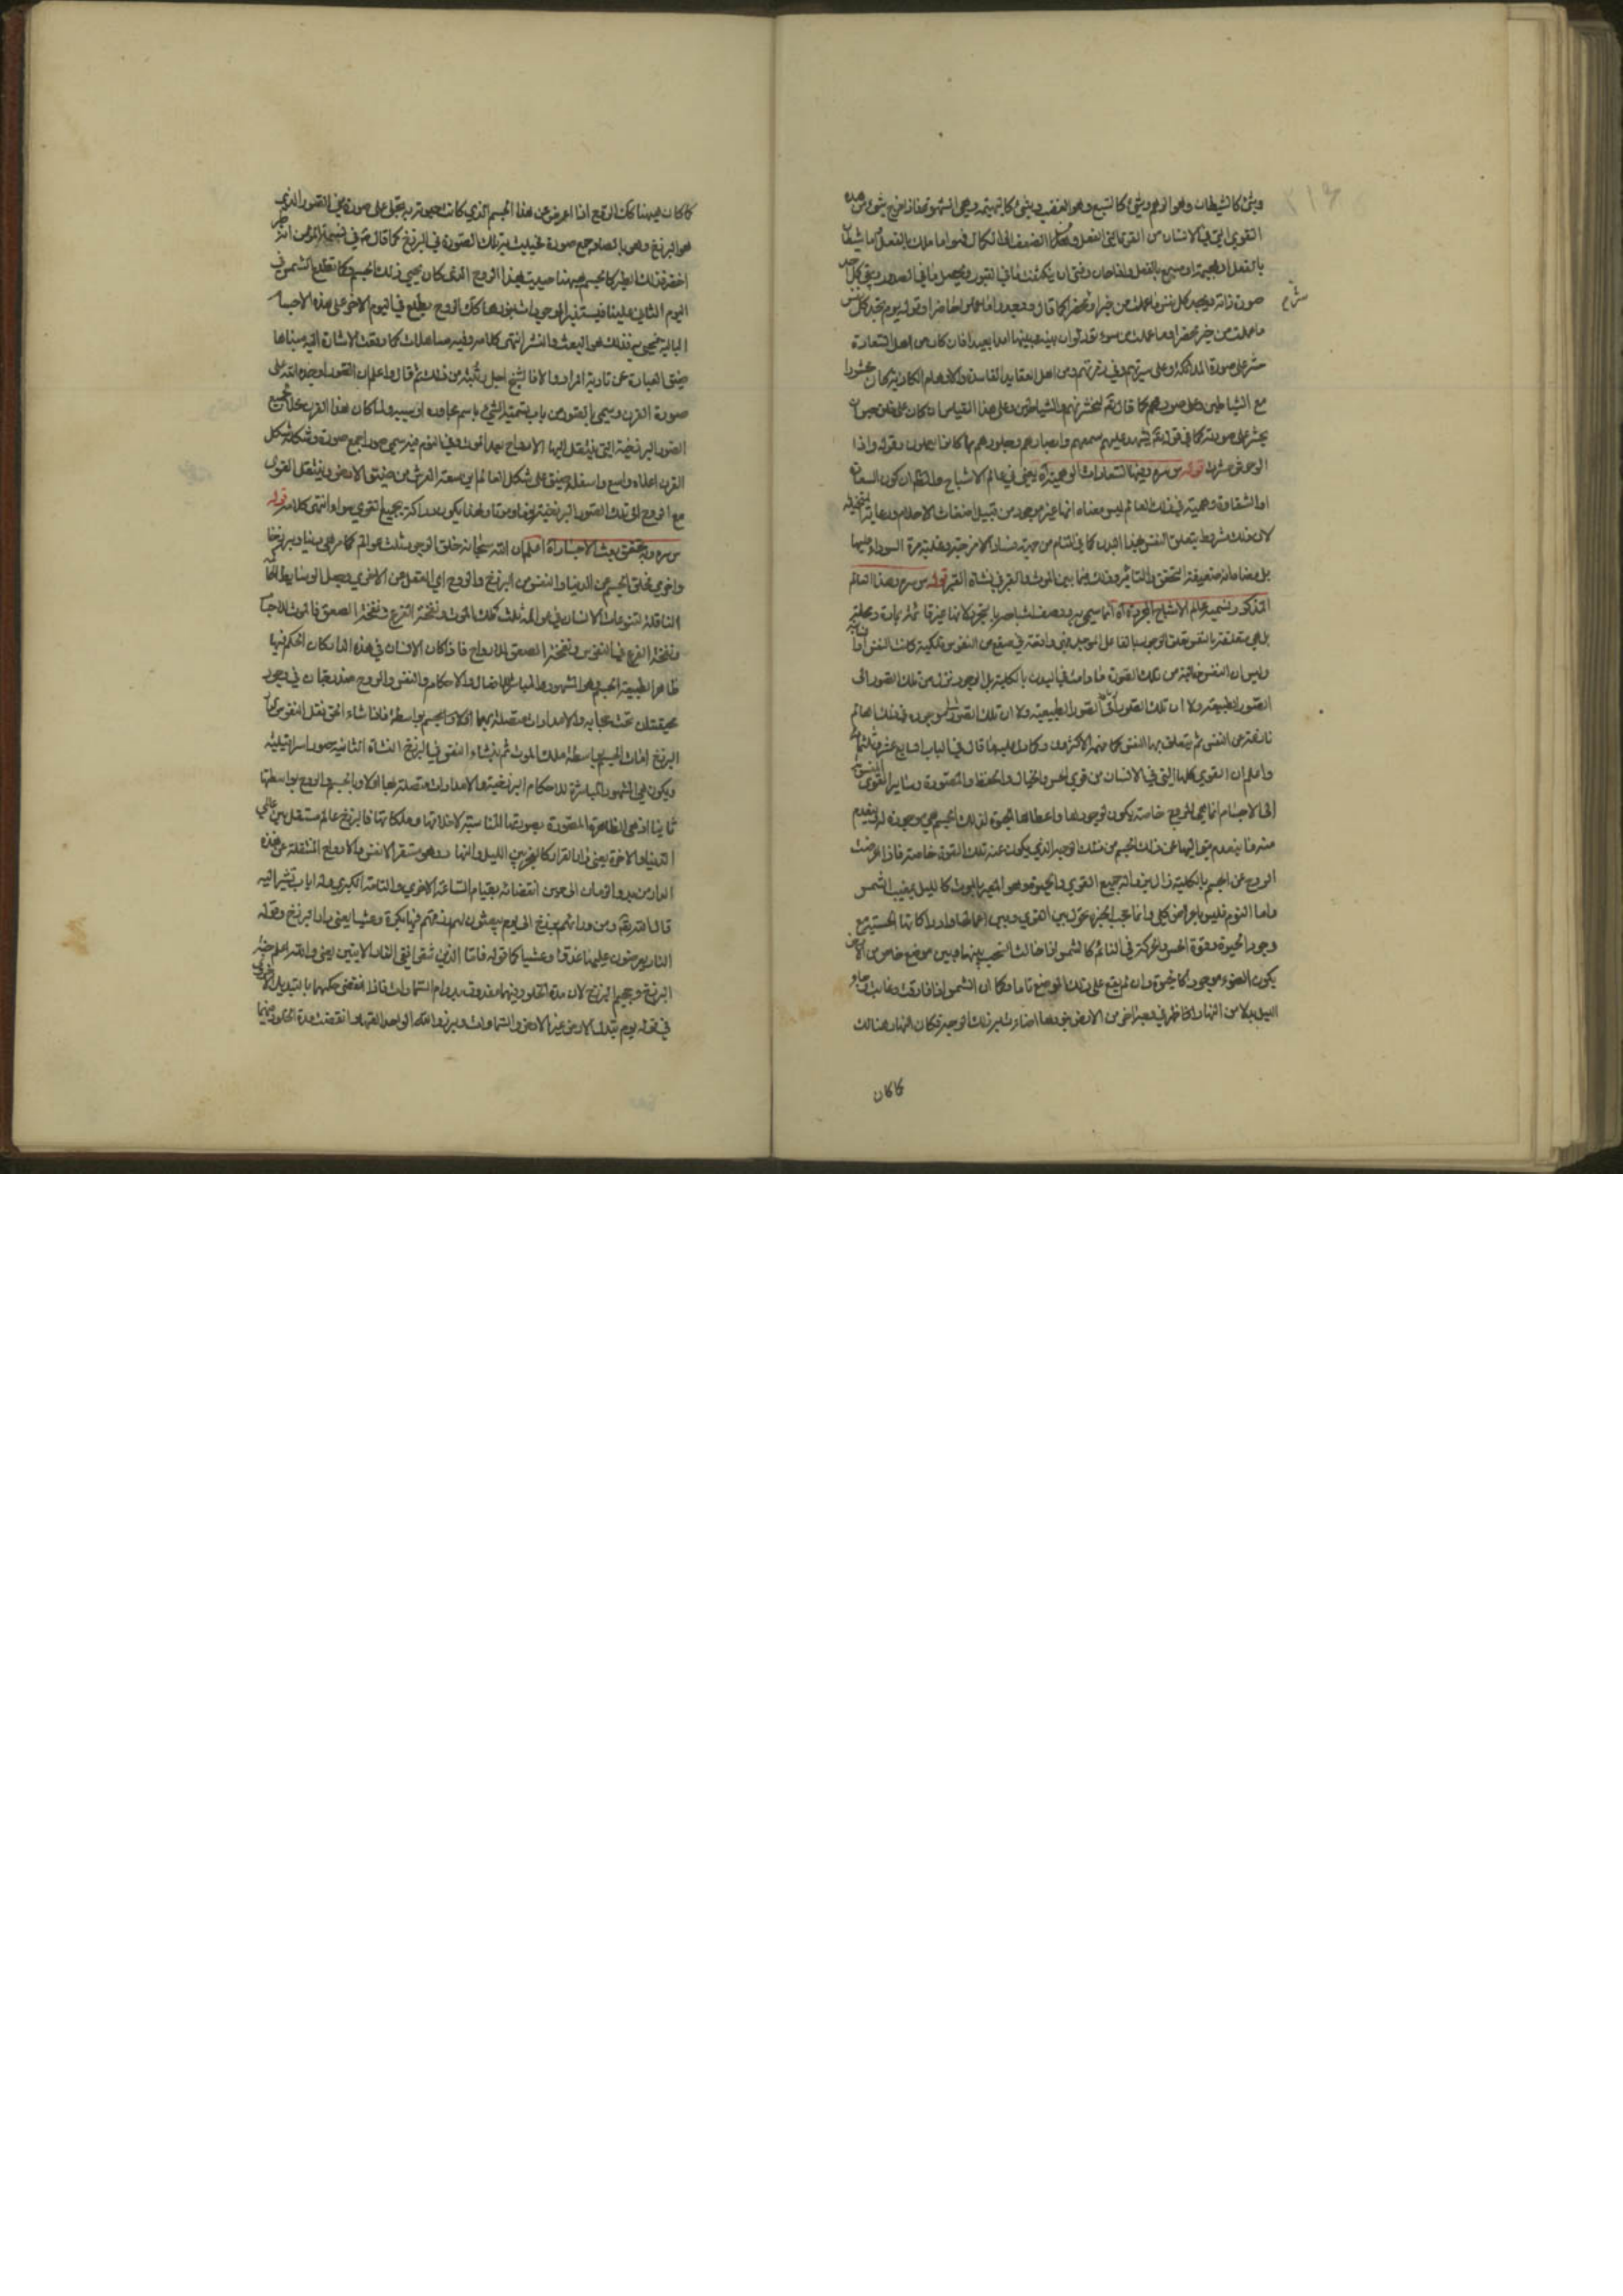 وشئ كالشيطان وهو الوهم وشئ كالسبع وهو الغضب وشئ كالبهيمة وهي الشهوة فاذا خرج شئ من هذه
القوى التي في الانسان من القوة الى الفعل
بالفعل او بهيمة او سبع بالفعل
صورة ذاته ويجد كل نفس ما عملت من خير او شر محضرا كما قال ووجدوا ما عملوا حاضرا وقوله يوم تجد كل نفس
ما عملت من خير محضرا وما عملت من سوء تود لو ان بينها وبينه امدا بعيدا فان كان من اهل السعادة
حشر على صورة الملائكة وعلى سيرتهم وفي زمرتهم ومن اهل العقايد الفاسدة والاوهام الكاذبة كان حشره
مع الشياطين وعلى صورهم كما قال تع لنحشرنهم والشياطين وعلى هذا القياس ان كان على خلق حيوان
يحشر على صورته كما في قوله تع تشهد عليهم سمعهم وابصارهم وجلودهم بما كانوا يعملون وقوله واذا
الوحوش حشرت قوله س سره ومنها السعادات الوهمية آه يعني في عالم الاشباح ولا تظن ان كون السعادة
او الشقاوة وهمية في ذلك العالم ليس معناه انها غير موجودة من قبيل اضغاث الاحلام
لان ذلك مشروط بتعلق النفس بهذا البدن كما في المنام من جهة فساد الامزجة وغلبة مرة السوداء عليها
بل معناه انه ضعيفة التحقق والتاثير وذلك فيما بين الموت والقبر في نشاة القبر قوله س سره وهذا العالم
المذكور نسميه عالم الاشباح المجردة آه انما سمي به ووصف اشباحه بالتجرد لانها غير قائمة بمادة ومحلها
بل هي متعلقة بالنفس تعلق الوجود بالفاعل الموجد
وليس ان النفس خالية من تلك القوة ما دامت في البدن بالكلية
الصور الطبيعية ولا ان تلك الصور الصور الطبيعية ولا ان تلك الصور موجودة في ذلك العالم
عن النفس ثم يتعلق بها النفس كما فهمه الاكثرون قال في الباب السابع عشر وثلثمائة
واعلم ان القوى كلها التي في الانسان من قوى الحس والخيال والحفظ والمصورة وسائر القوى المنسوبة
الى الاجسام انما هي للروح خاصة تكون بوجودها واعطائها الحيوة لذلك الجسم
فاذا اعرضت
الروح عن الجسم بالكلية زال بزواله جميع القوى والحيوة وهو المعبر بالموت كالليل بمغيب الشمس
واما النوم فليس باعراض كلي وانما حجب ابخرة تحول بين القوى وبين ادراكاتها الحسية مع
وجود الحيوة وقوة الحس والحركة في النائم كالشمس اذا حالت السحب بينها وبين موضع خاص من الارض
يكون الضوء موجودا كالحيوة وان لم يقع على ذلك الموضع تاما وكما ان الشمس اذا فارقت وغابت وجاء
الليل بدلا من النهار ظهر في موضع اخر من الارض بنورها
كما كان
كما كان ههنا كذلك الروح اذا اعرض عن هذا الجسم الذي كانت حيوته به تجلى على صورة من الصور الذي
هو البرزخ وهو بالصاد جمع صورة فحييت به تلك الصورة في البرزخ كما قال ص في نسمة المؤمن انه طير
اخضر فذلك الطير كالجسم ههنا حييت بهذا الروح الذي كان يحيي ذلك الجسم وكما تطلع الشمس في
اليوم الثاني علينا فيستنير الموجودات بنورها كذلك الروح يطلع في اليوم الاخر على هذه الاجساد
البالية فتحيي به فذلك هو البعث والنشر انتهى كلامه وفيه مساهلات كما وقعت الاشارة اليه مبناها
ضيق العبارة عن تادية المراد والا فالشيخ اجل رتبة من ذلك ثم قال واعلم ان الصور اوجده الله على
صورة القرن وسمي بالصور من باب تسمية الشئ باسم مجاوره او سببه ولما كان هذا القرن محلا لجميع
الصور البرزخية التي ينتقل اليها الارواح بعد الموت وفي النوم فيه سمي صورا جمع صورة وشكله شكل
القرن اعلاه واسع واسفله ضيق على شكل العالم اين سعة العرش من ضيق الارض وينتقل القوى
مع الروح الى تلك الصور البرزخية نوما وموتا ولهذا يكون دراكة بجميع القوى سواء انتهى كلامه قوله
س سره وبه تحقق بعث الاجساد آه اعلم ان الله سبحانه خلق الوجود ثلث عوالم كما مر دنيا وبرزخا
واخرى فخلق الجسم من الدنيا والنفس من البرزخ والروح اي العقل من الاخرى وجعل الوسائط الحاكمة
الناقلة لتنوعات الانسان في عوالمه ثلث ملك الموت ونفخة الفزع ونفخة الصعق فالموت للاجساد
ونفخة الفزع للنفوس ونفخة الصعق للارواح فاذا كان الانسان في هذه الدار كان الحكم فيها
ظاهرا لطبيعة الجسم وهو المشهود والمباشر للافعال والاحكام والنفس والروح مندرجتان في وجود
حقيقتان تحت حجابه والامدادات متصلة بهما اولا وبالجسم بواسطة فاذا شاء الحق نقل النفس الى
البرزخ امات الجسم بواسطة ملك الموت ثم ينشاء النفس في البرزخ النشاة الثانية بصور اسرافيلية
ويكون هي المشهود المباشرة للاحكام البرزخية والامدادات متصلة بها اولا وبالجسم والروح بواسطتها
ثانيا اذ هي الظاهرة المصورة بصورتها المناسبة لاخلاقها وملكاتها فالبرزخ عالم مستقل بين عالمي
الدنيا والاخرة يعني دار القرار كالفجر بين الليل والنهار وهو مستقر الانفس والارواح المنتقلة عن هذه
الدار من بدو الزمان الى حين انقضائه بقيام الساعة الاخرى والطامة الكبرى
قال الله تع ومن ورائهم برزخ الى يوم يبعثون لهم رزقهم فيها بكرة وعشيا يعني دار البرزخ وقوله
النار يعرضون عليها غدوا وعشيا كما قوله فاما الذين شقوا ففي النار الايتين يعني والله اعلم جنة
البرزخ وجحيم البرزخ لان مدة الخلود فيهما معروف بدوام السموات فاذا انقضى حكمها بالتبديل
في قوله يوم تبدل الارض غير الارض والسموات وبرزوا لله الواحد القهار انقضت مدة الخلود فيهما